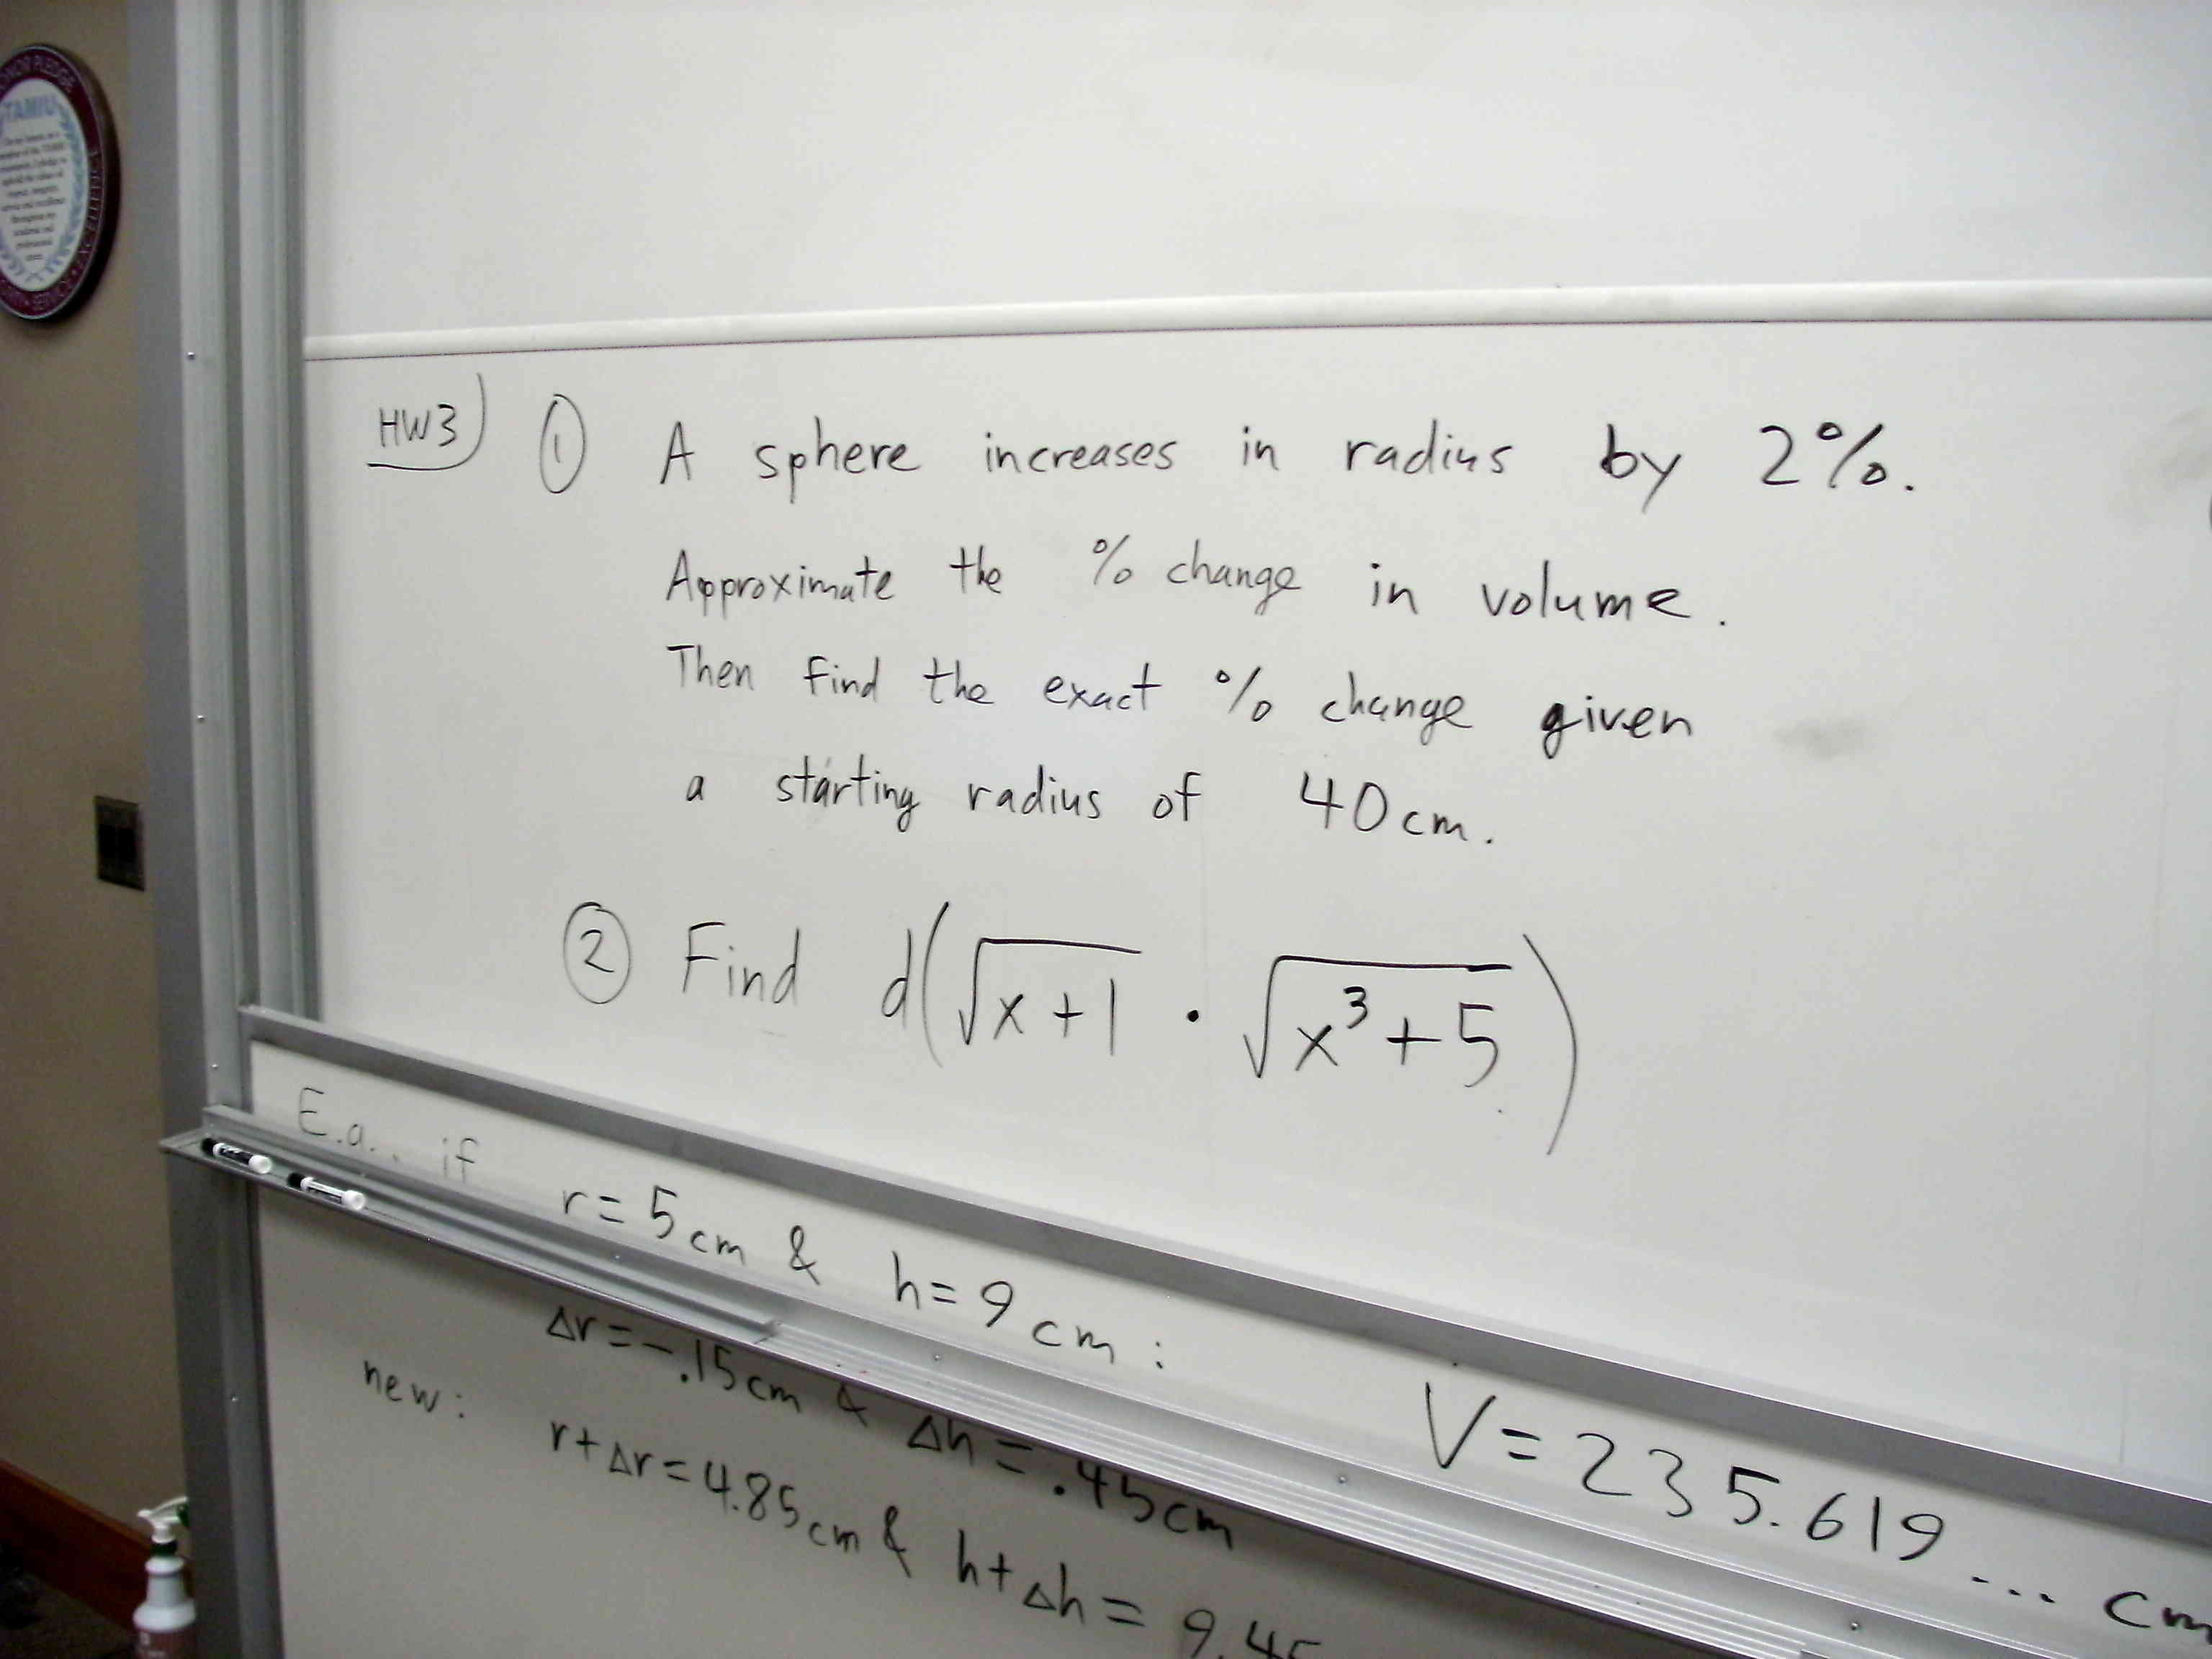 HONOR PLEDGE
TAMIU
HW3) ① A sphere increases in radius by 2%.
Approximate the % change in volume.
Then find the exact % change given
a starting radius of 40cm.
② Find d(√x+1 · √x³+5)
E.g.. if r=5cm & h=9cm: V=235.619... cm
Δr=-.15cm & Δh=.45cm
new: r+Δr=4.85cm & h+Δh=9.45